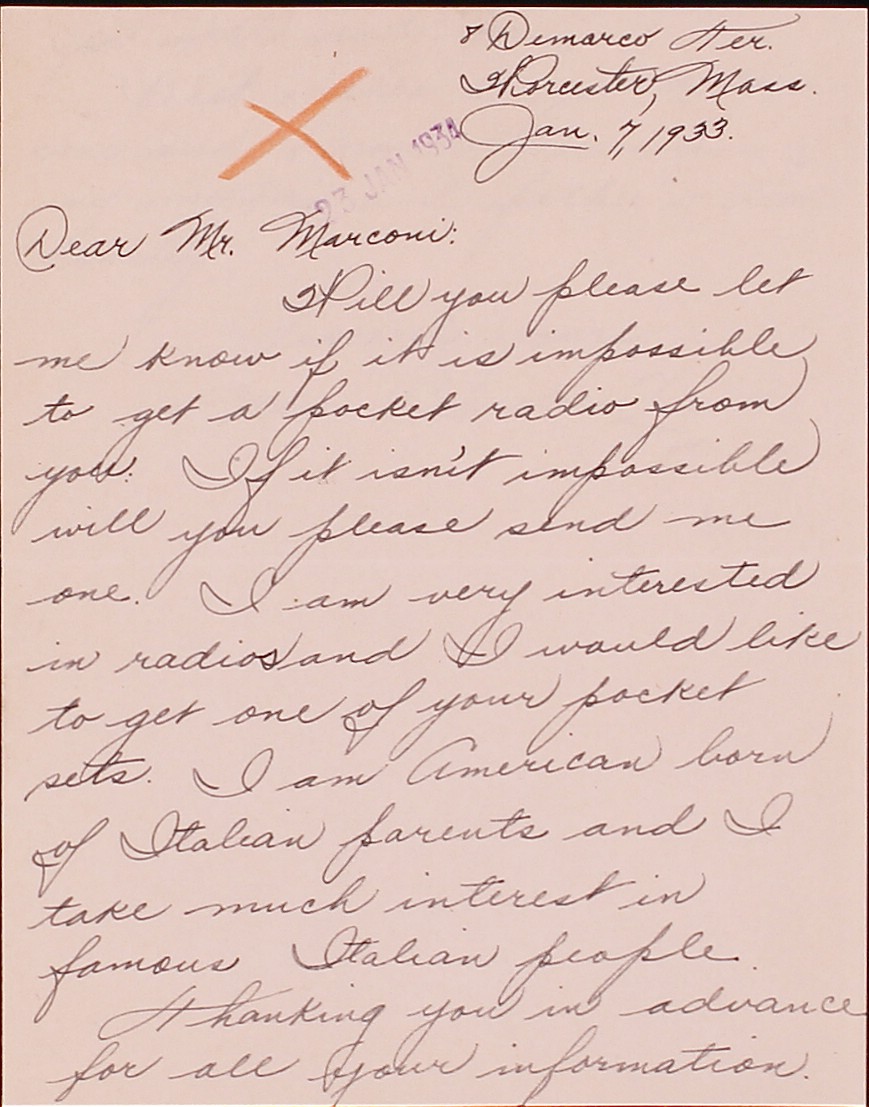 8 Demarco Ter.
Worcester, Mass.
Jan. 7, 1933.
23 JAN 1934
Dear Mr. Marconi:
Will you please let
me know if it is impossible
to get a pocket radio from
you. If it isn't impossible
will you please send me
one. I am very interested
in radios and I would like
to get one of your pocket
sets. I am American born
of Italian parents and I
take much interest in
famous Italian people.
Thanking you in advance
for all your information.